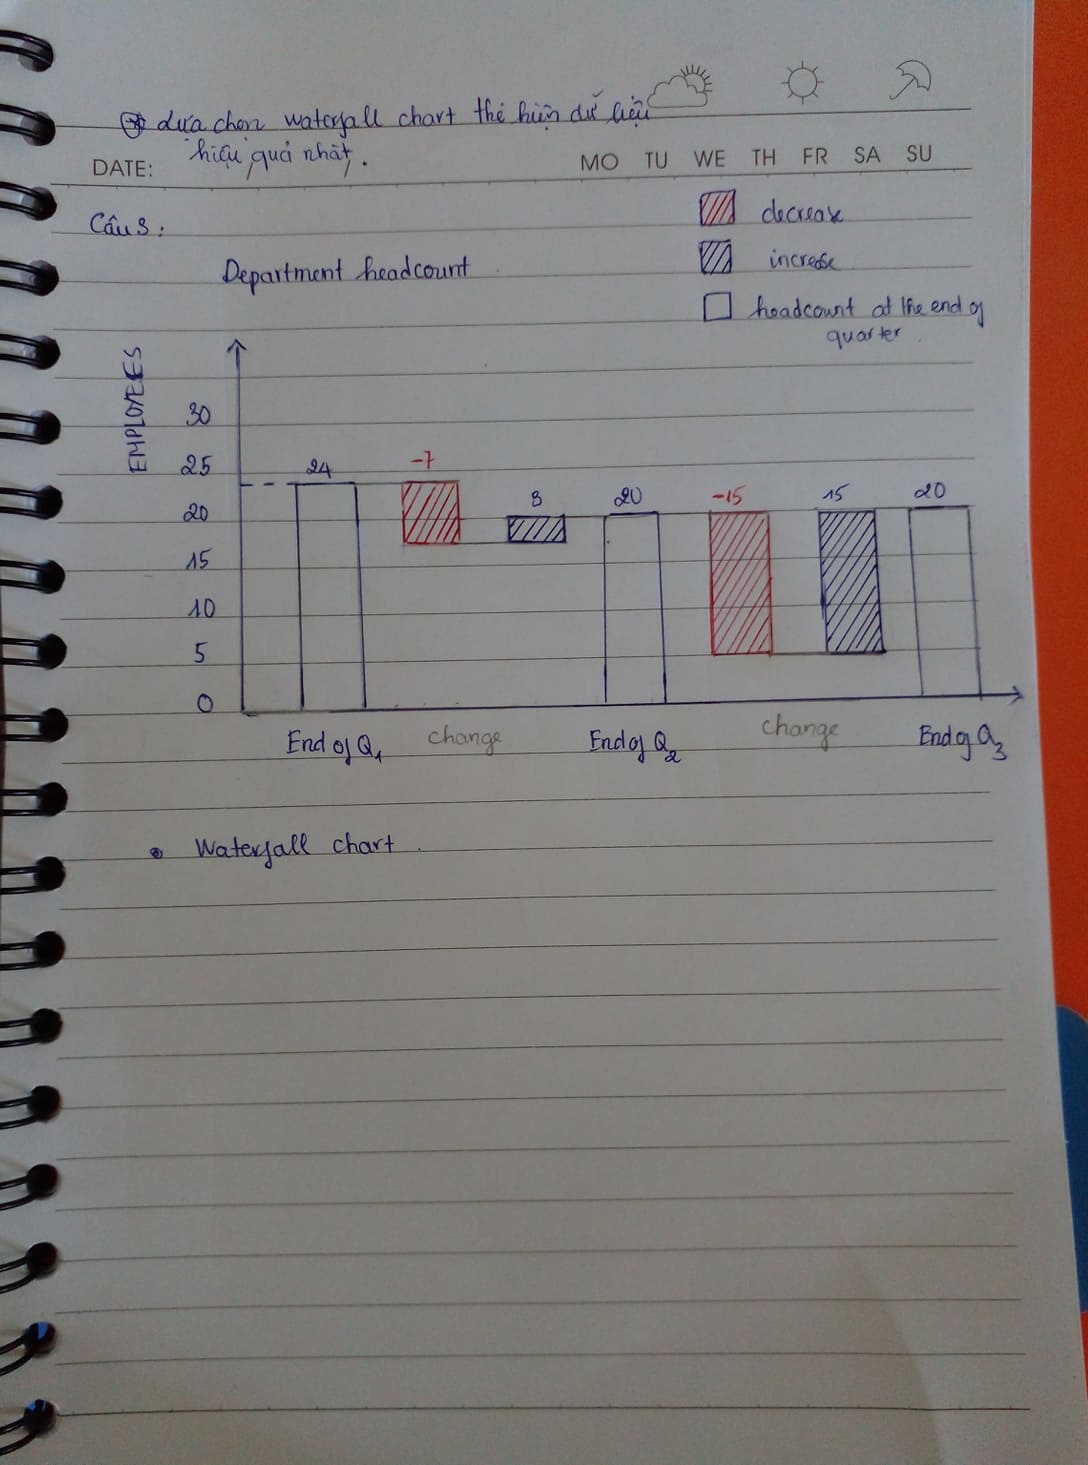 lựa chọn waterfall chart thể hiện dữ liệu
hiệu quả nhất.
DATE:
MO TU WE TH FR SA SU
Câu 3:
decrease
increase
headcount at the end of
quarter
Department headcount
EMPLOYEES
30
25
20
15
10
5
0
24
-7
3
20
-15
15
20
End of Q1
change
End of Q2
change
End of Q3
• Waterfall chart.